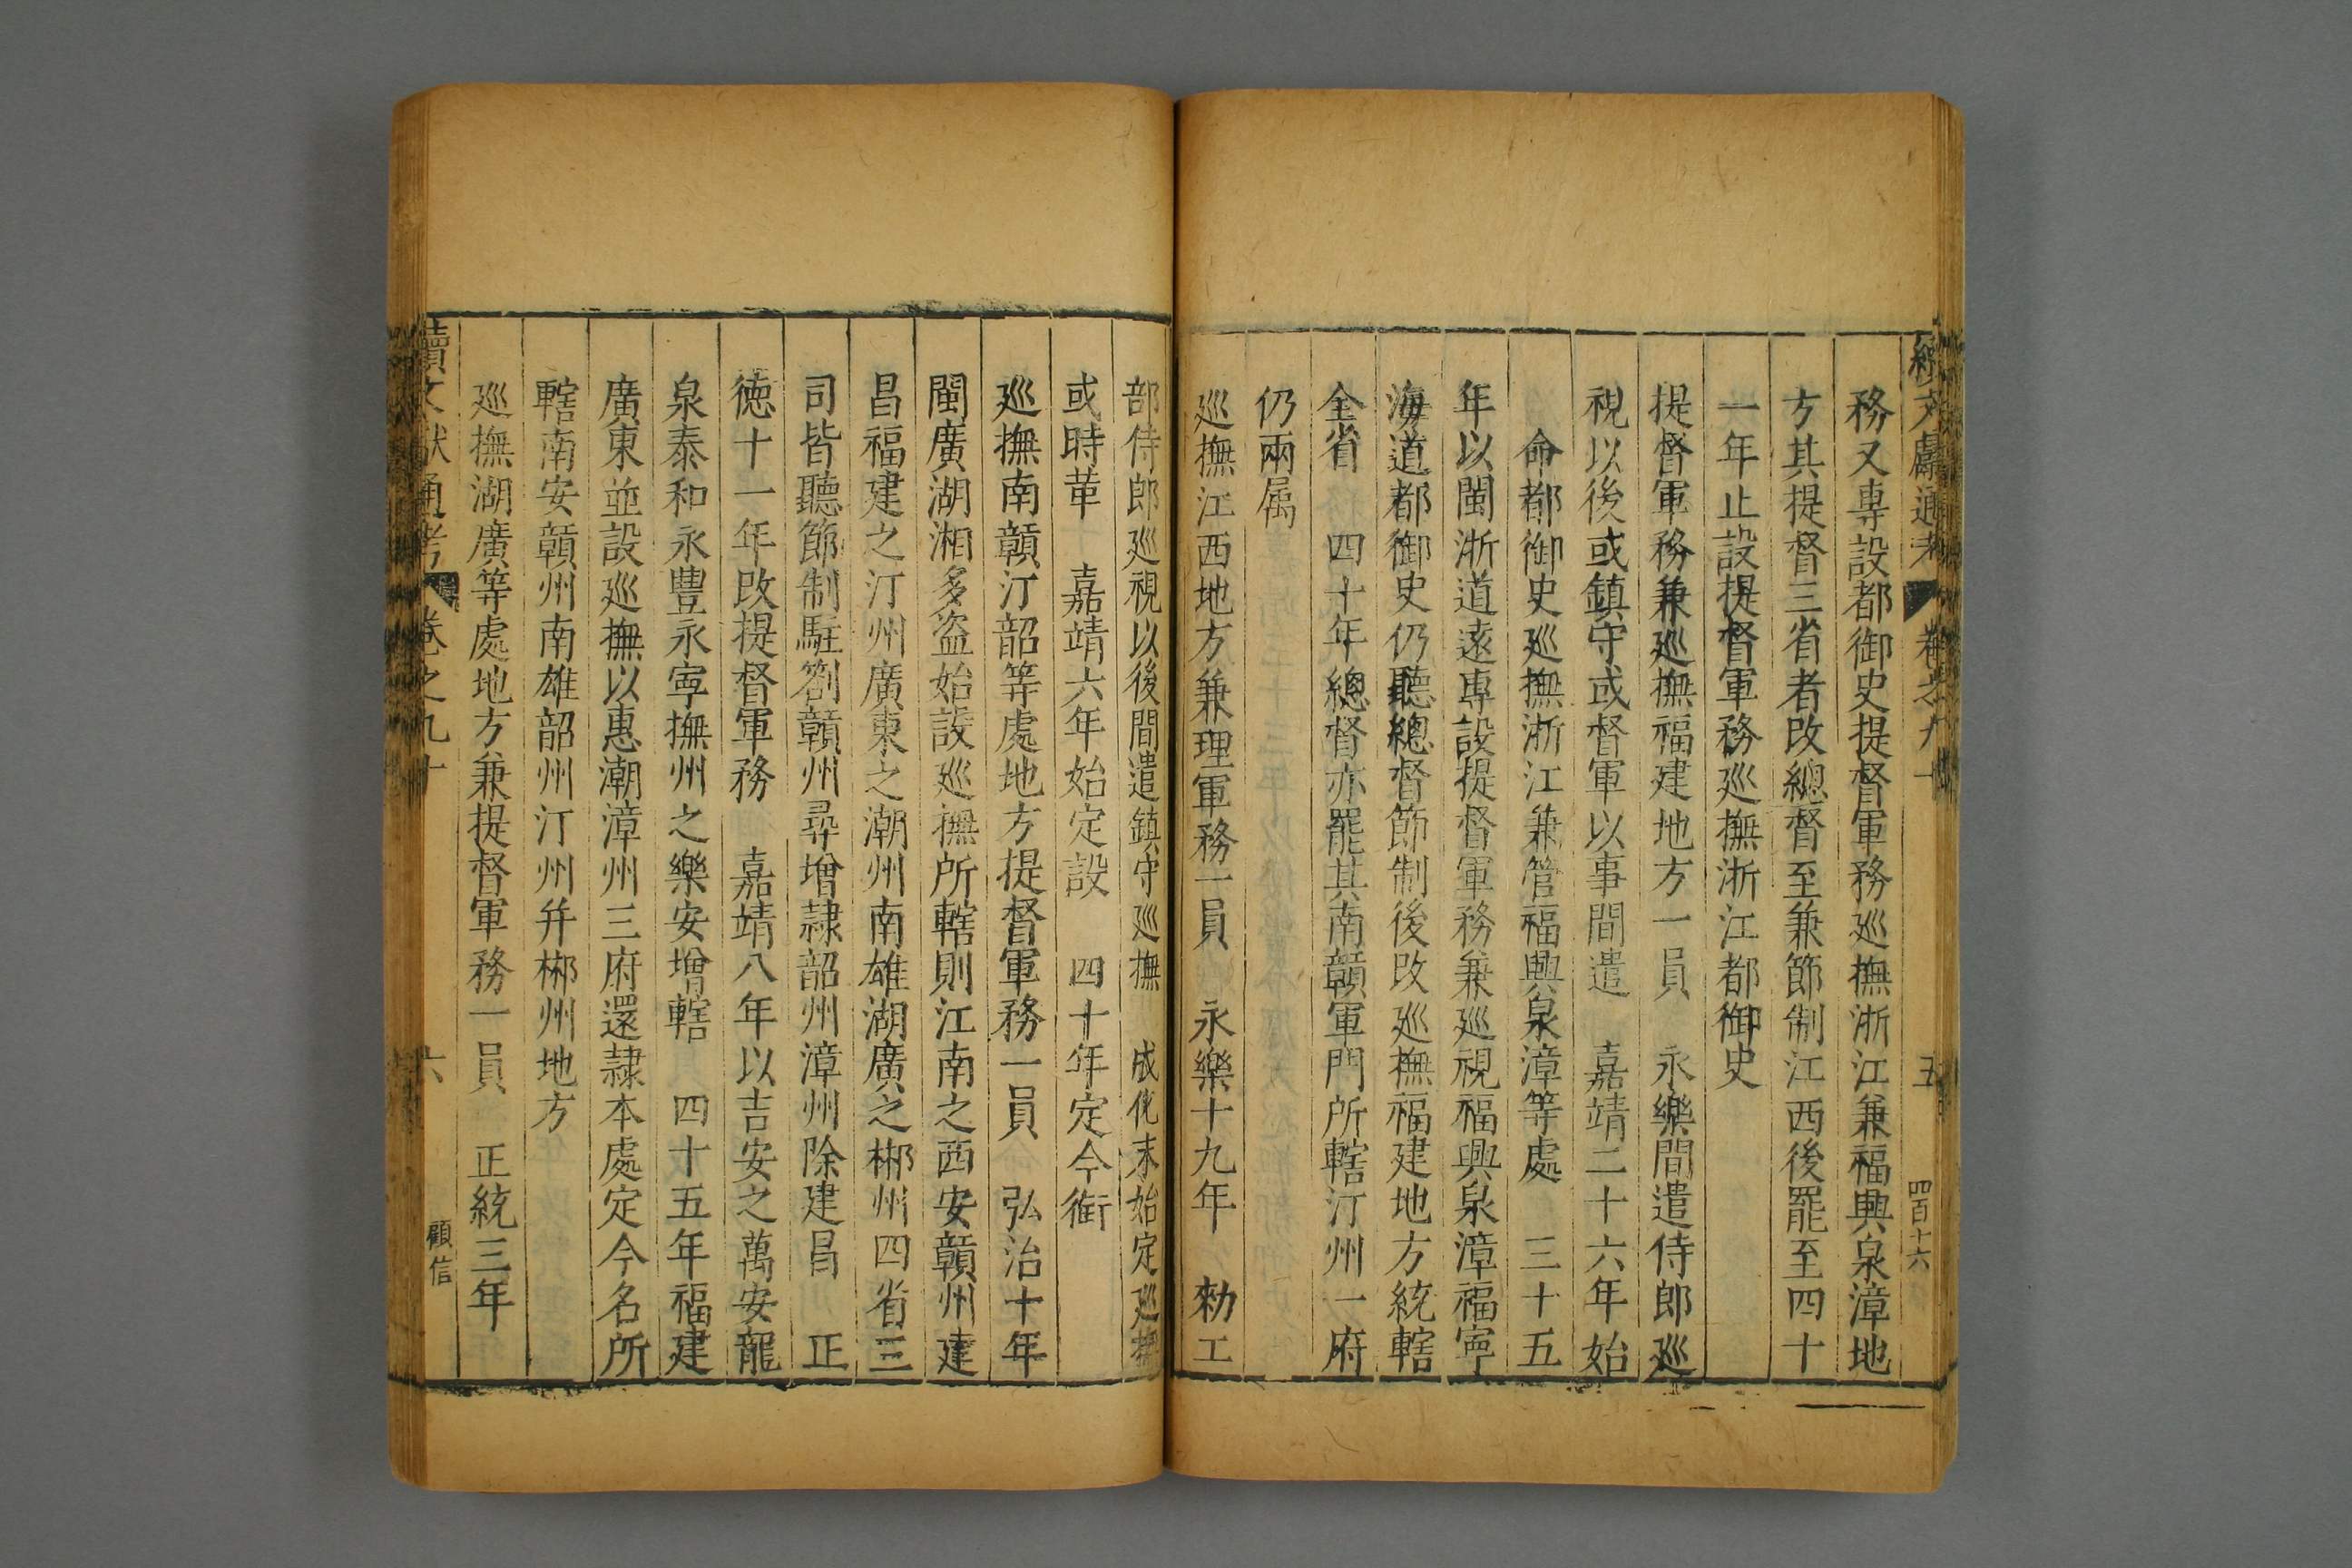 續文獻通考 卷之九十 五 四百十六
務又專設都御史提督軍務巡撫浙江兼福興泉漳地
方其提督三省者改總督至兼節制江西後罷至四十
一年止設提督軍務巡撫浙江都御史
提督軍務兼巡撫福建地方一員 永樂間遣侍郎巡
視以後或鎮守或督軍以事間遣 嘉靖二十六年始
命都御史巡撫浙江兼管福興泉漳等處 三十五
年以閩浙道遠專設提督軍務兼巡視福興泉漳福寧
海道都御史仍聽總督節制後改巡撫福建地方統轄
全省 四十年總督亦罷其南贛軍門所轄汀州一府
仍兩属
巡撫江西地方兼理軍務一員 永樂十九年 勑工
部侍郎巡視以後間遣鎮守巡撫 成化末始定巡撫
或時革 嘉靖六年始定設 四十年定今銜
巡撫南贛汀韶等處地方提督軍務一員 弘治十年
閩廣湖湘多盜始設巡撫所轄則江南之西安贛州建
昌福建之汀州廣東之潮州南雄湖廣之郴州四省三
司皆聽節制駐劄贛州尋增隷韶州漳州除建昌 正
德十一年改提督軍務 嘉靖八年以吉安之萬安龍
泉泰和永豐永寧撫州之樂安增轄 四十五年福建
廣東並設巡撫以惠潮漳州三府還隷本處定今名所
轄南安贛州南雄韶州汀州并郴州地方
巡撫湖廣等處地方兼提督軍務一員 正統三年
續文獻通考 卷之九十 六 顧信